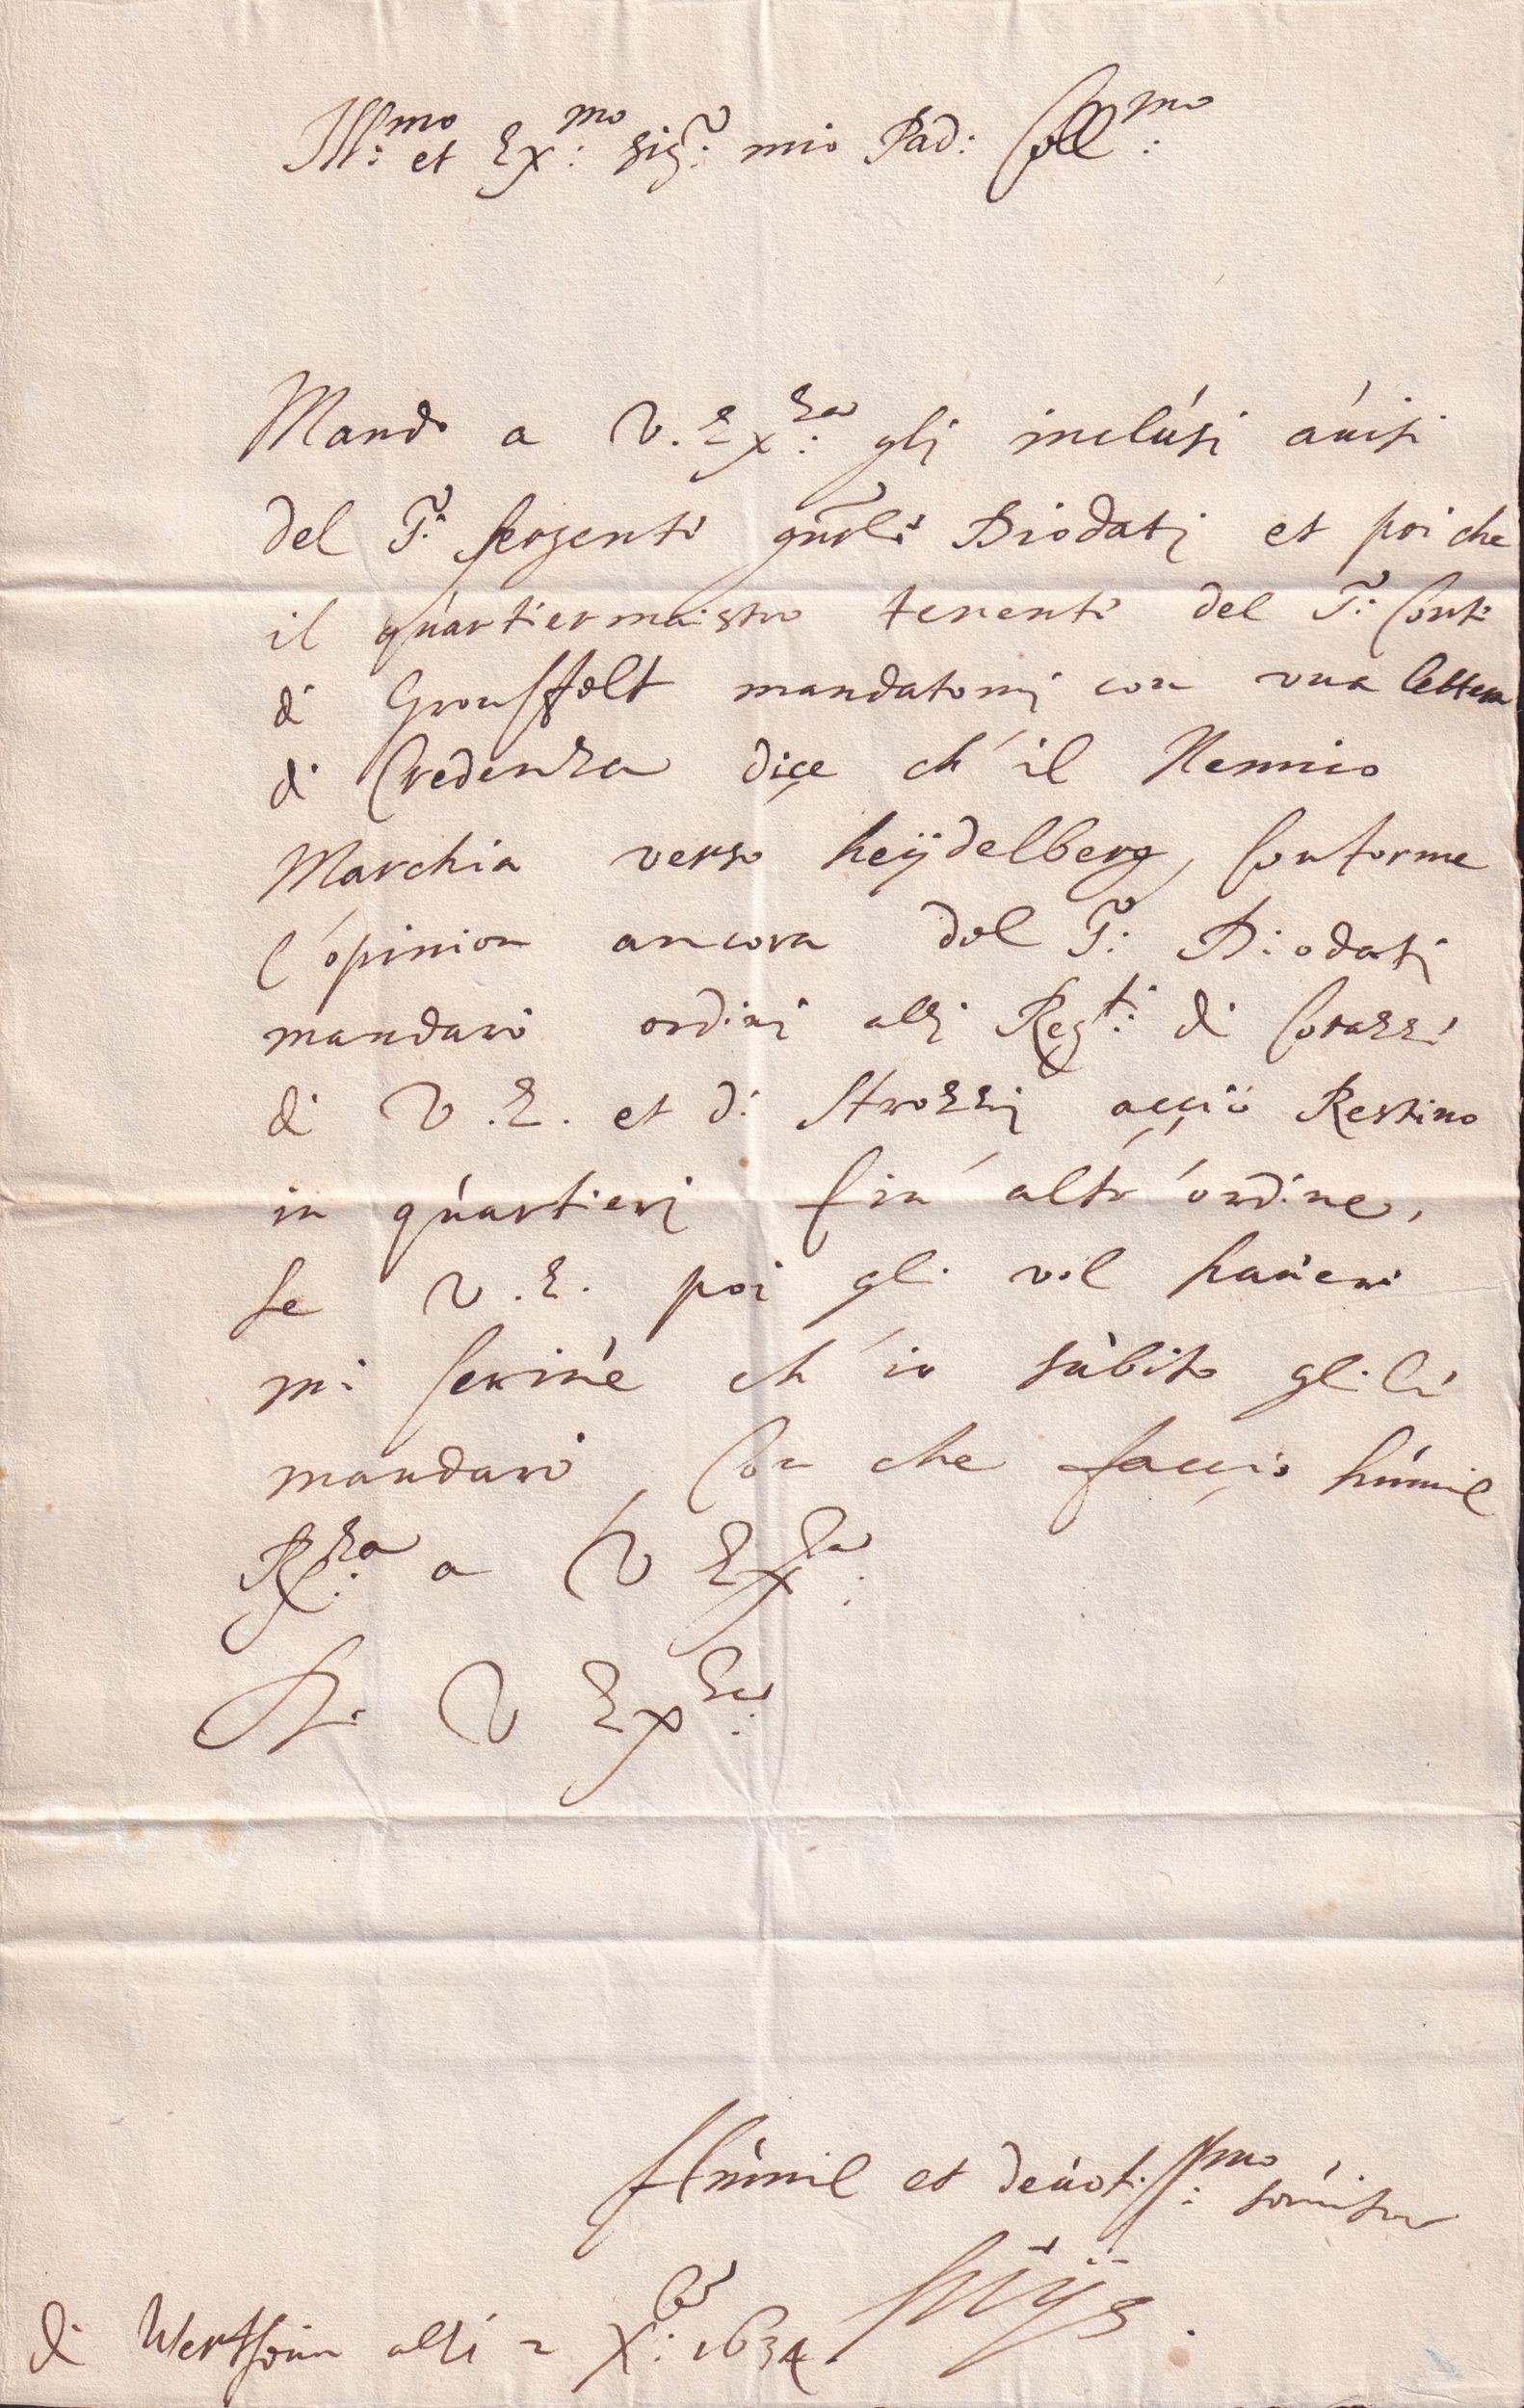 Ill:mo et Ex:mo Sig:r mio Pad: Coll:mo
Mando a V. Ex:za gli inclúsi áuisi
del S:r sergente gnrle Diodati et poi che
il quartiermaistro tenente del S:r Conte
di Gronsffelt mandatomi con vna lettera
di Credenza diçe ch'il Nemico
Marchia verso heÿdelberg, Conforme
l'opinion ancora del S:r Diodati
mandaro ordini alli Reg:ti di Corazze
di V. E. et di Strozzi acçiò Restino
in quartieri fin altr ordine,
se V. E. poi gli vol hauere
mi scriue ch'io súbito gli li
mandarò, Con che facçio húmil
R:za a V Ex:za
Di V Ex:za
Húmil et deúotiss:mo seruitor
húÿs.
di Wertheim alli 2 X:br 1634